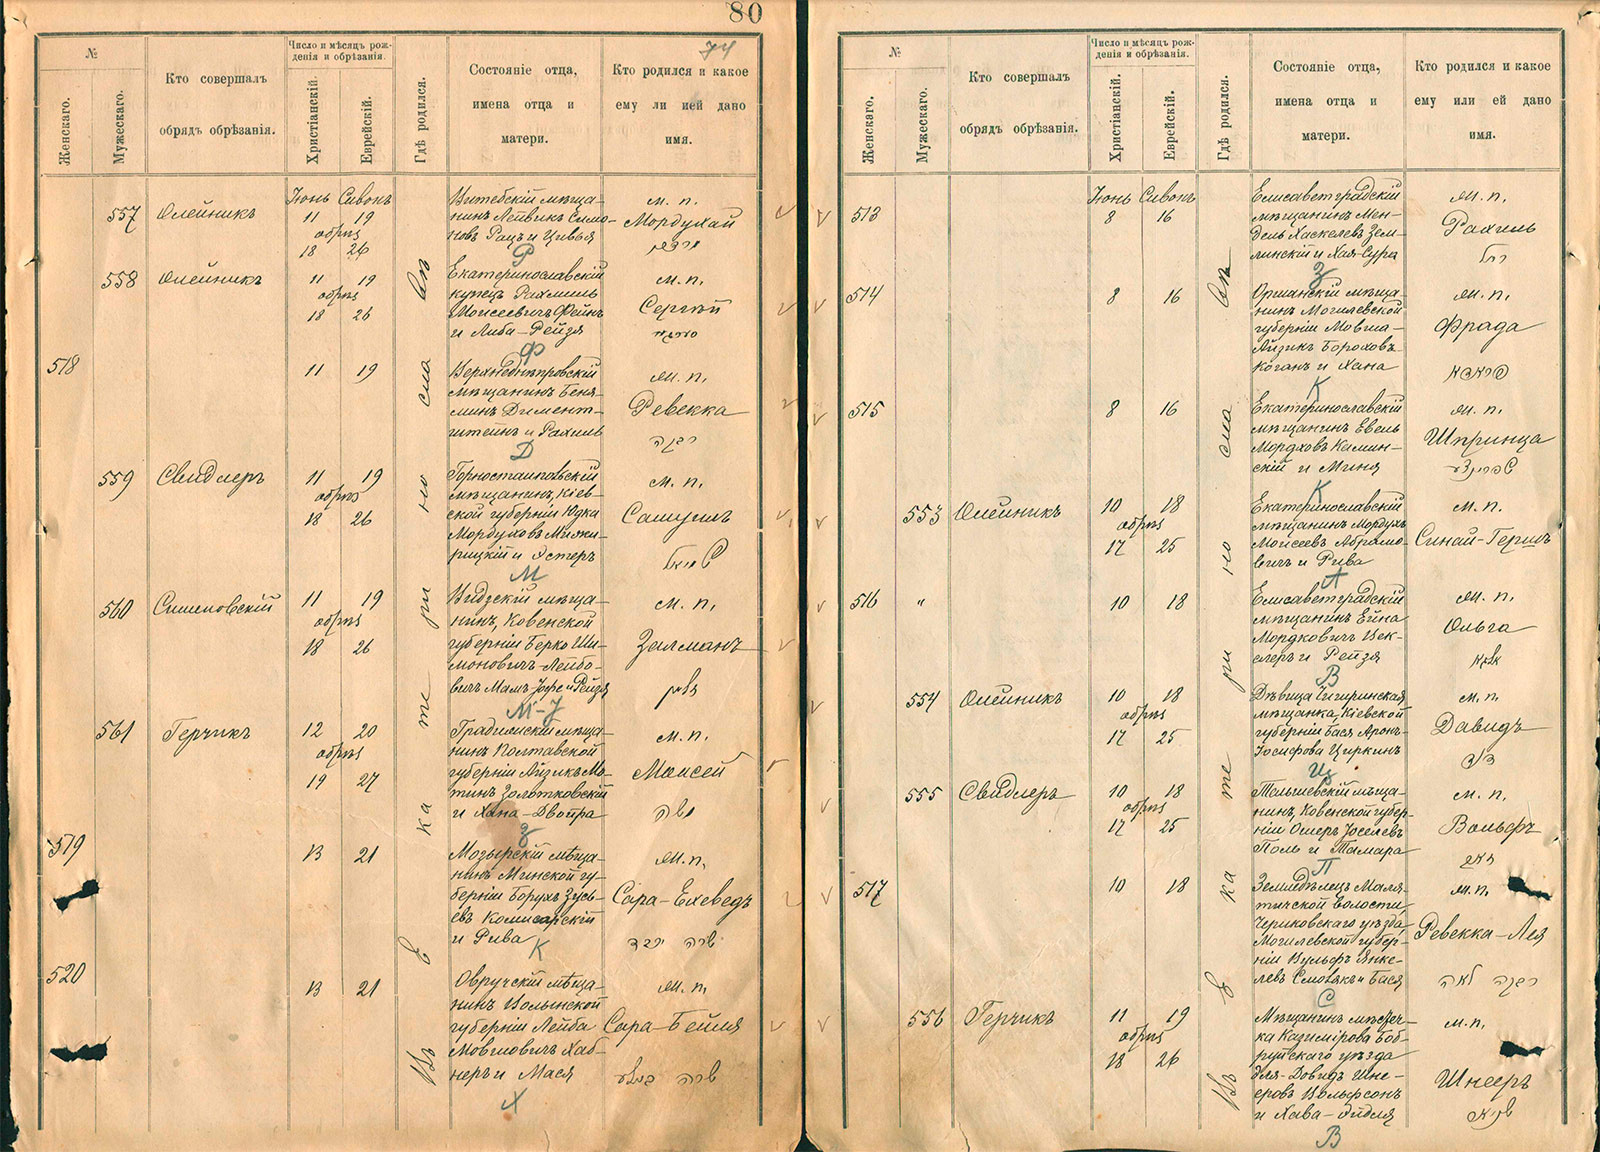 80
74
№
Женскаго.
Мужескаго.
Кто совершалъ
обрядъ обрѣзанія.
Число и мѣсяцъ рож-
денія и обрѣзанія.
Христіанскій.
Еврейскій.
Гдѣ родился.
Состояніе отца,
имена отца и
матери.
Кто родился и какое
ему ли ией дано
имя.
Въ Екатеринославѣ
557
Олейникъ
Іюнь Сивонъ
11 19
обрѣз
18 26
Витебскій мѣща-
нинъ Лейвикъ Симо-
новъ Рацъ и Цивья
Р
м. п.
Мордухай
558
Олейникъ
11 19
обрѣз
18 26
Екатеринославскій
купецъ Рахмиль
Моисеевичъ Фейнъ
и Либа-Рейзя
Ф
м. п.
Сергѣй
518
11 19
Верхнеднѣпровскій
мѣщанинъ Беня-
минъ Димент-
штейнъ и Рахиль
Д
м. п.
Ревекка
רבקה
559
Свидлеръ
11 19
обрѣз
18 26
Горностайпольскій
мѣщанинъ, Кіев-
ской губерніи Юдка
Мордуховъ Межи-
рицкій и Эстеръ
М
м. п.
Самуилъ
560
Симсповскій
11 19
обрѣз
18 26
Видзскій мѣща-
нинъ, Ковенской
губерніи Берко Ши-
моновичъ Лейбо-
вичъ Мам-Іофе и Рейзя
М-І
м. п.
Залманъ
זלמן
561
Герчикъ
12 20
обрѣз
19 27
Градижскій мѣща-
нинъ Полтавской
губерніи Айзикъ Мо-
тинъ Золотковскій
и Хана-Двойра
З
м. п.
Моисей
משה
519
13 21
Мозырскій мѣща-
нинъ Минской гу-
берніи Борухъ Зусь-
евъ Комисарскій
и Рива
К
м. п.
Сара-Ехеведъ
שרה יכבד
520
13 21
Овручскій мѣща-
нинъ Волынской
губерніи Лейба
Мовшовичъ Хаб-
неръ и Мася
Х
м. п.
Сара-Бейля
שרה ביילע
№
Женскаго.
Мужескаго.
Кто совершалъ
обрядъ обрѣзанія.
Число и мѣсяцъ рож-
денія и обрѣзанія.
Христіанскій.
Еврейскій.
Гдѣ родился.
Состояніе отца,
имена отца и
матери.
Кто родился и какое
ему или ей дано
имя.
Въ Екатеринославѣ
513
Іюнь Сивонъ
8 16
Елисаветградскій
мѣщанинъ Мен-
дель Хаскелевъ Зем-
линскій и Хая-Сура
З
м. п.
Рахиль
רחל
514
8 16
Оршанскій мѣща-
нинъ Могилевской
губерніи Мовша-
Айзикъ Бороховъ
Коганъ и Хана
К
м. п.
Фрада
פראדא
515
8 16
Екатеринославскій
мѣщанинъ Евель
Мордховъ Камин-
скій и Миня
К
м. п.
Шпринца
שפרינצע
553
Олейникъ
10 18
обрѣз
17 25
Екатеринославскій
мѣщанинъ Мордухъ
Моисеевъ Абрамо-
вичъ и Рива
А
м. п.
Синай-Гершъ
516
"
10 18
Елисаветградскій
мѣщанинъ Ейна
Мордковичъ Век-
слеръ и Рейзя
В
м. п.
Ольга
554
Олейникъ
10 18
обрѣз
17 25
Дѣвица Чигиринская
мѣщанка, Кіевской
губерніи Бася Аронъ-
Іосифова Циркинъ
Ц
м. п.
Давидъ
דוד
555
Свидлеръ
10 18
обрѣз
17 25
Тельшевскій мѣща-
нинъ, Ковенской губер-
ніи Ошеръ Іоселевъ
Поль и Тамара
П
м. п.
Вольфъ
זאב
517
10 18
Земледѣлецъ Маля-
тичской волости,
Чериковскаго уѣзда,
Могилевской губер-
ніи Вульфъ Янке-
левъ Смовякъ и Бася
С
м. п.
Ревекка-Лея
רבקה לאה
556
Герчикъ
11 19
обрѣз
18 26
Мѣщанинъ мѣстеч-
ка Казимірова Боб-
руйскаго уѣзда
Эля-Довидъ Шне-
еровъ Вольфсонъ
и Хава-Эйдля
В
м. п.
Шнееръ